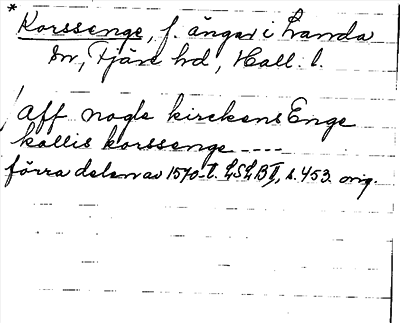 * Korssenge, f. ängar i Landa
sn, Fjäre hd, Hall. l.
Aff nogle kirckens Enge
kallis korssenge ----
förra delen av 1570-t. LSLB II, s. 453. orig.